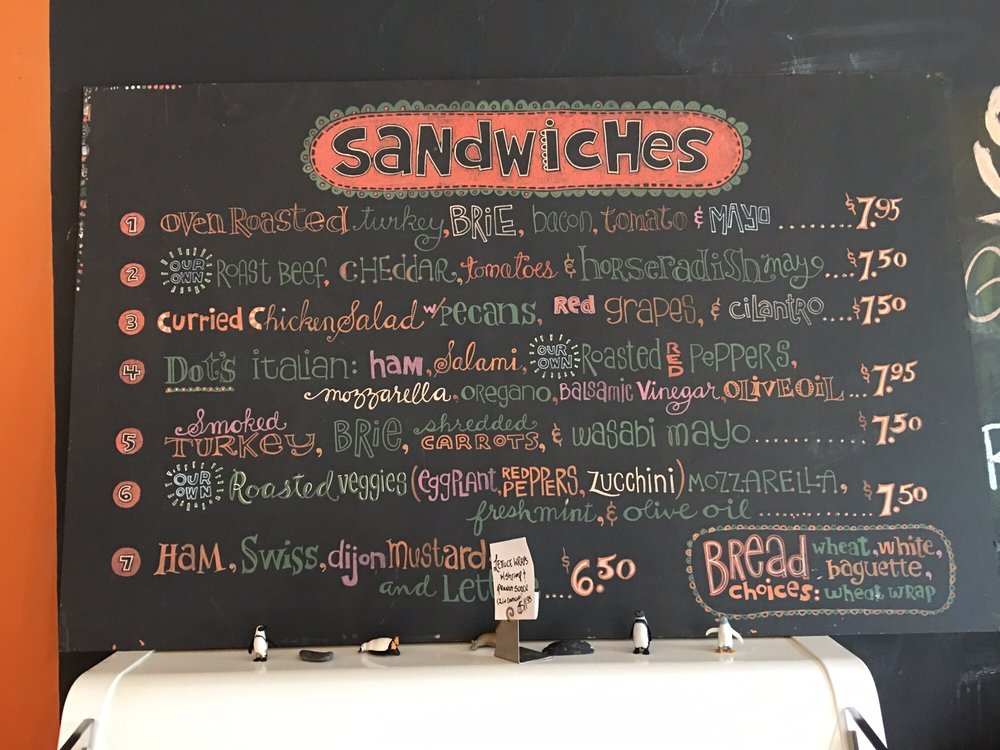 SANDWICHES
1 OVEN ROASTED turkey, BRIE, bacon, tomato & MAYO ........ $7.95
2 OUR OWN ROAST BEEF, CHEDDAR, tomatoes & horseradish mayo .... $7.50
3 Curried Chicken Salad w/ Pecans, Red grapes, & CILANTRO .... $7.50
4 Dot's italian: ham, Salami, OUR OWN Roasted RED PePPERS,
mozzarella, OREGANO, Balsamic Vinegar, OLIVE OIL ... $7.95
5 Smoked TURKEY, BRIE, shredded CARROTS, & wasabi mayo ............ $7.50
6 OUR OWN Roasted veggies (eggPLANT, RED PEPPERS, Zucchini) MOZZARELLA,
fresh mint, & olive oil ............ $7.50
7 HAM, Swiss, dijon Mustard
and Let .... $6.50
BREAD choices: wheat, white,
baguette,
wheat wrap
Lettuce WRAPS
w/shrimp &
Peanut Sauce